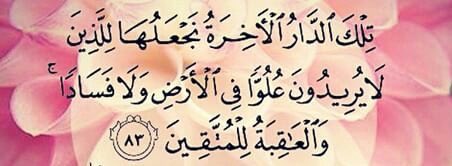 تِلْكَ ٱلدَّارُ ٱلْأَخِرَةُ نَجْعَلُهَا لِلَّذِينَ
لَا يُرِيدُونَ عُلُوًّا فِي ٱلْأَرْضِ وَلَا فَسَادًا ۚ
وَٱلْعَٰقِبَةُ لِلْمُتَّقِينَ ٨٣